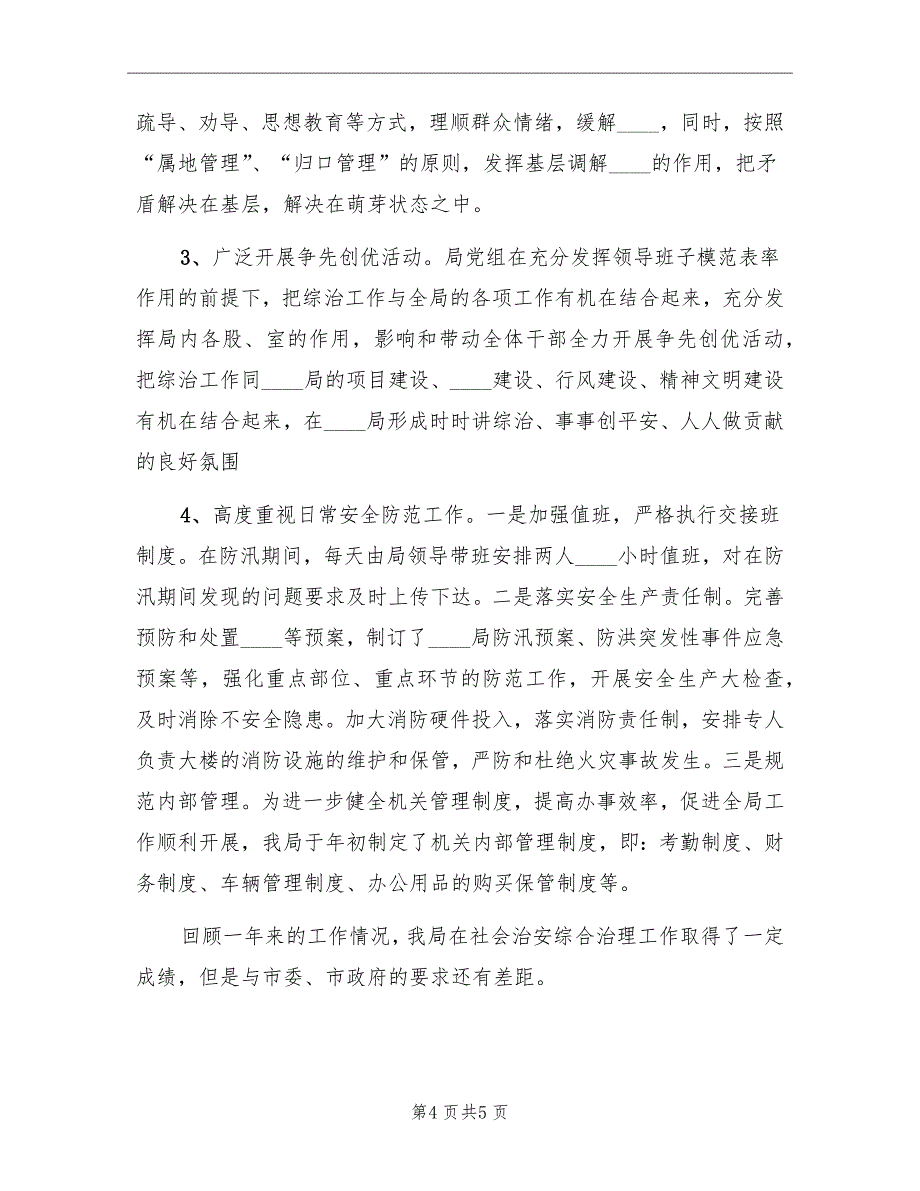 疏导、劝导、思想教育等方式，理顺群众情绪，缓解____，同时，按照
“属地管理”、“归口管理”的原则，发挥基层调解____的作用，把矛
盾解决在基层，解决在萌芽状态之中。
3、广泛开展争先创优活动。局党组在充分发挥领导班子模范表率
作用的前提下，把综治工作与全局的各项工作有机在结合起来，充分发
挥局内各股、室的作用，影响和带动全体干部全力开展争先创优活动，
把综治工作同____局的项目建设、____建设、行风建设、精神文明建设
有机在结合起来，在____局形成时时讲综治、事事创平安、人人做贡献
的良好氛围
4、高度重视日常安全防范工作。一是加强值班，严格执行交接班
制度。在防汛期间，每天由局领导带班安排两人____小时值班，对在防
汛期间发现的问题要求及时上传下达。二是落实安全生产责任制。完善
预防和处置____等预案，制订了____局防汛预案、防洪突发性事件应急
预案等，强化重点部位、重点环节的防范工作，开展安全生产大检查，
及时消除不安全隐患。加大消防硬件投入，落实消防责任制，安排专人
负责大楼的消防设施的维护和保管，严防和杜绝火灾事故发生。三是规
范内部管理。为进一步健全机关管理制度，提高办事效率，促进全局工
作顺利开展，我局于年初制定了机关内部管理制度，即：考勤制度、财
务制度、车辆管理制度、办公用品的购买保管制度等。
回顾一年来的工作情况，我局在社会治安综合治理工作取得了一定
成绩，但是与市委、市政府的要求还有差距。
第4 页共5 页